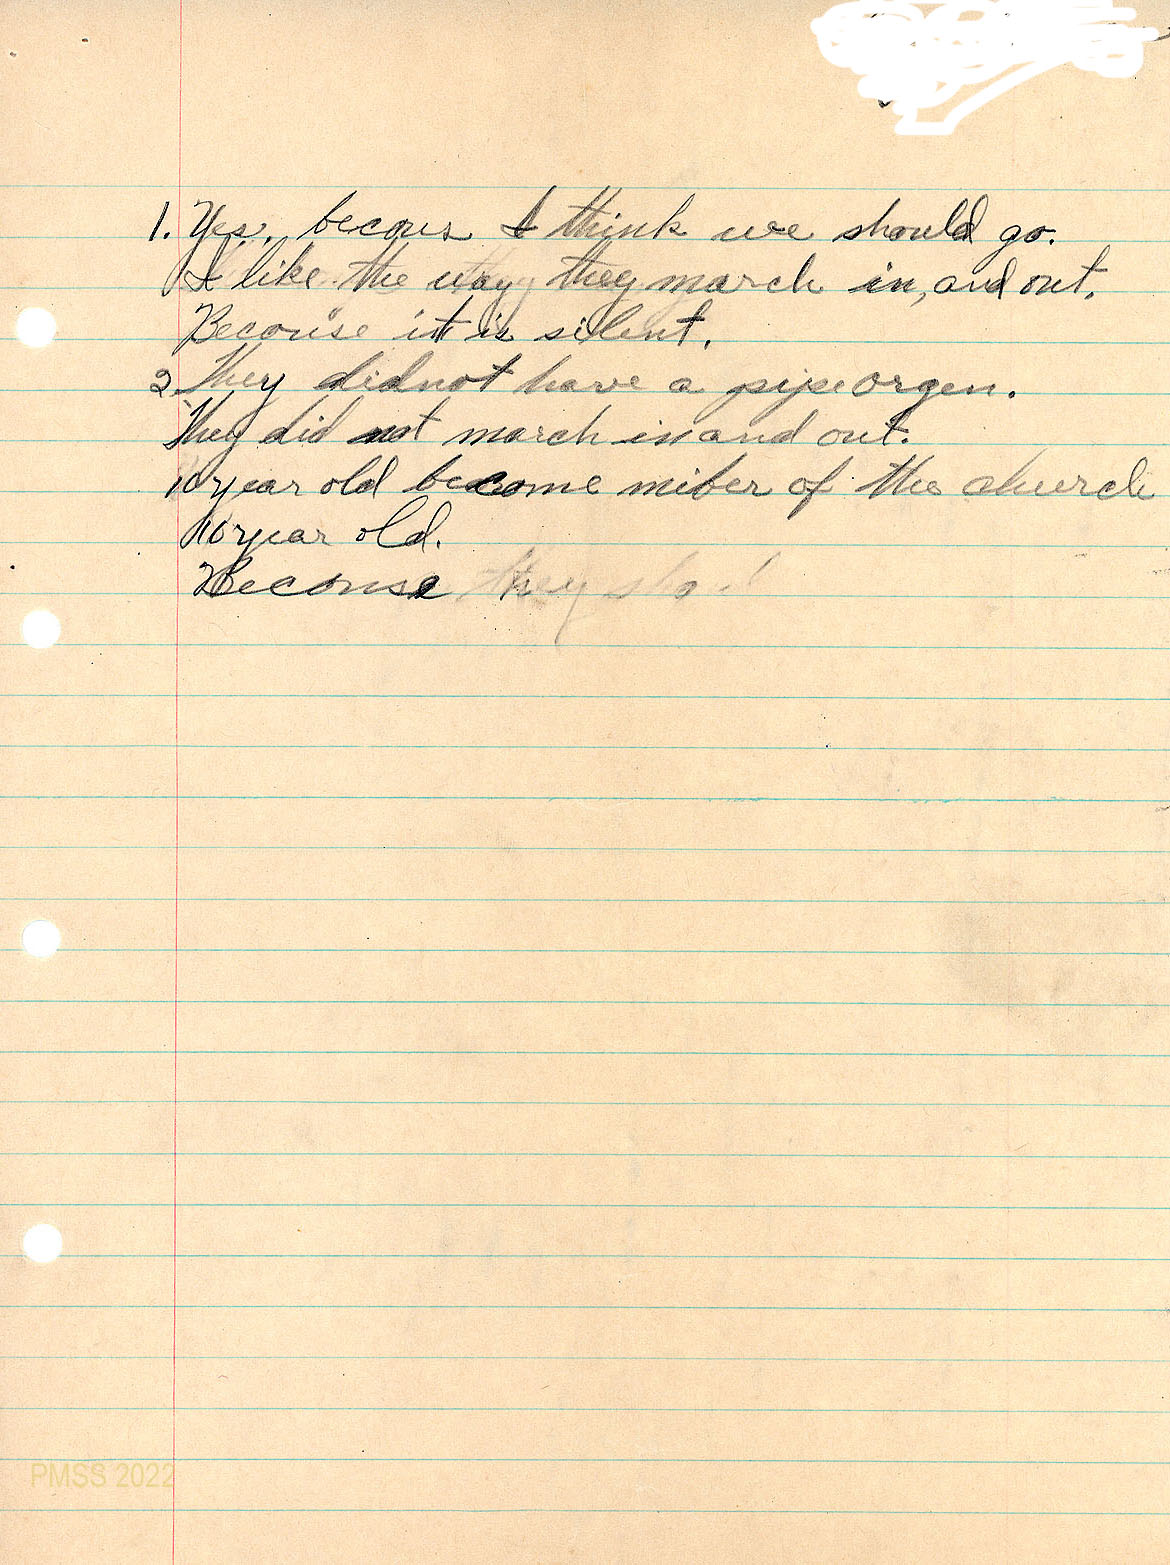 1. Yes, becous I think we should go.
I like the way they march in, and out.
Becouse it is silent.
2. They didnot have a pipe orgen.
They did not march in and out.
10 year old become miber of the church
10 year old.
Becouse they
PMSS 2022